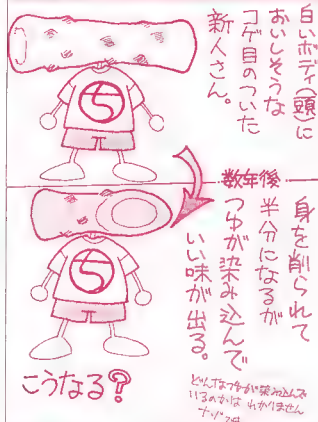 白いボディ(頭)に
おいしそうな
コゲ目のついた
新人さん。
ち
数年後
身を削られて
半分になるが
つゆが染み込んで
いい味が出る。
ち
こうなる?
どんなつゆが染み込んで
いるのかは わかりません